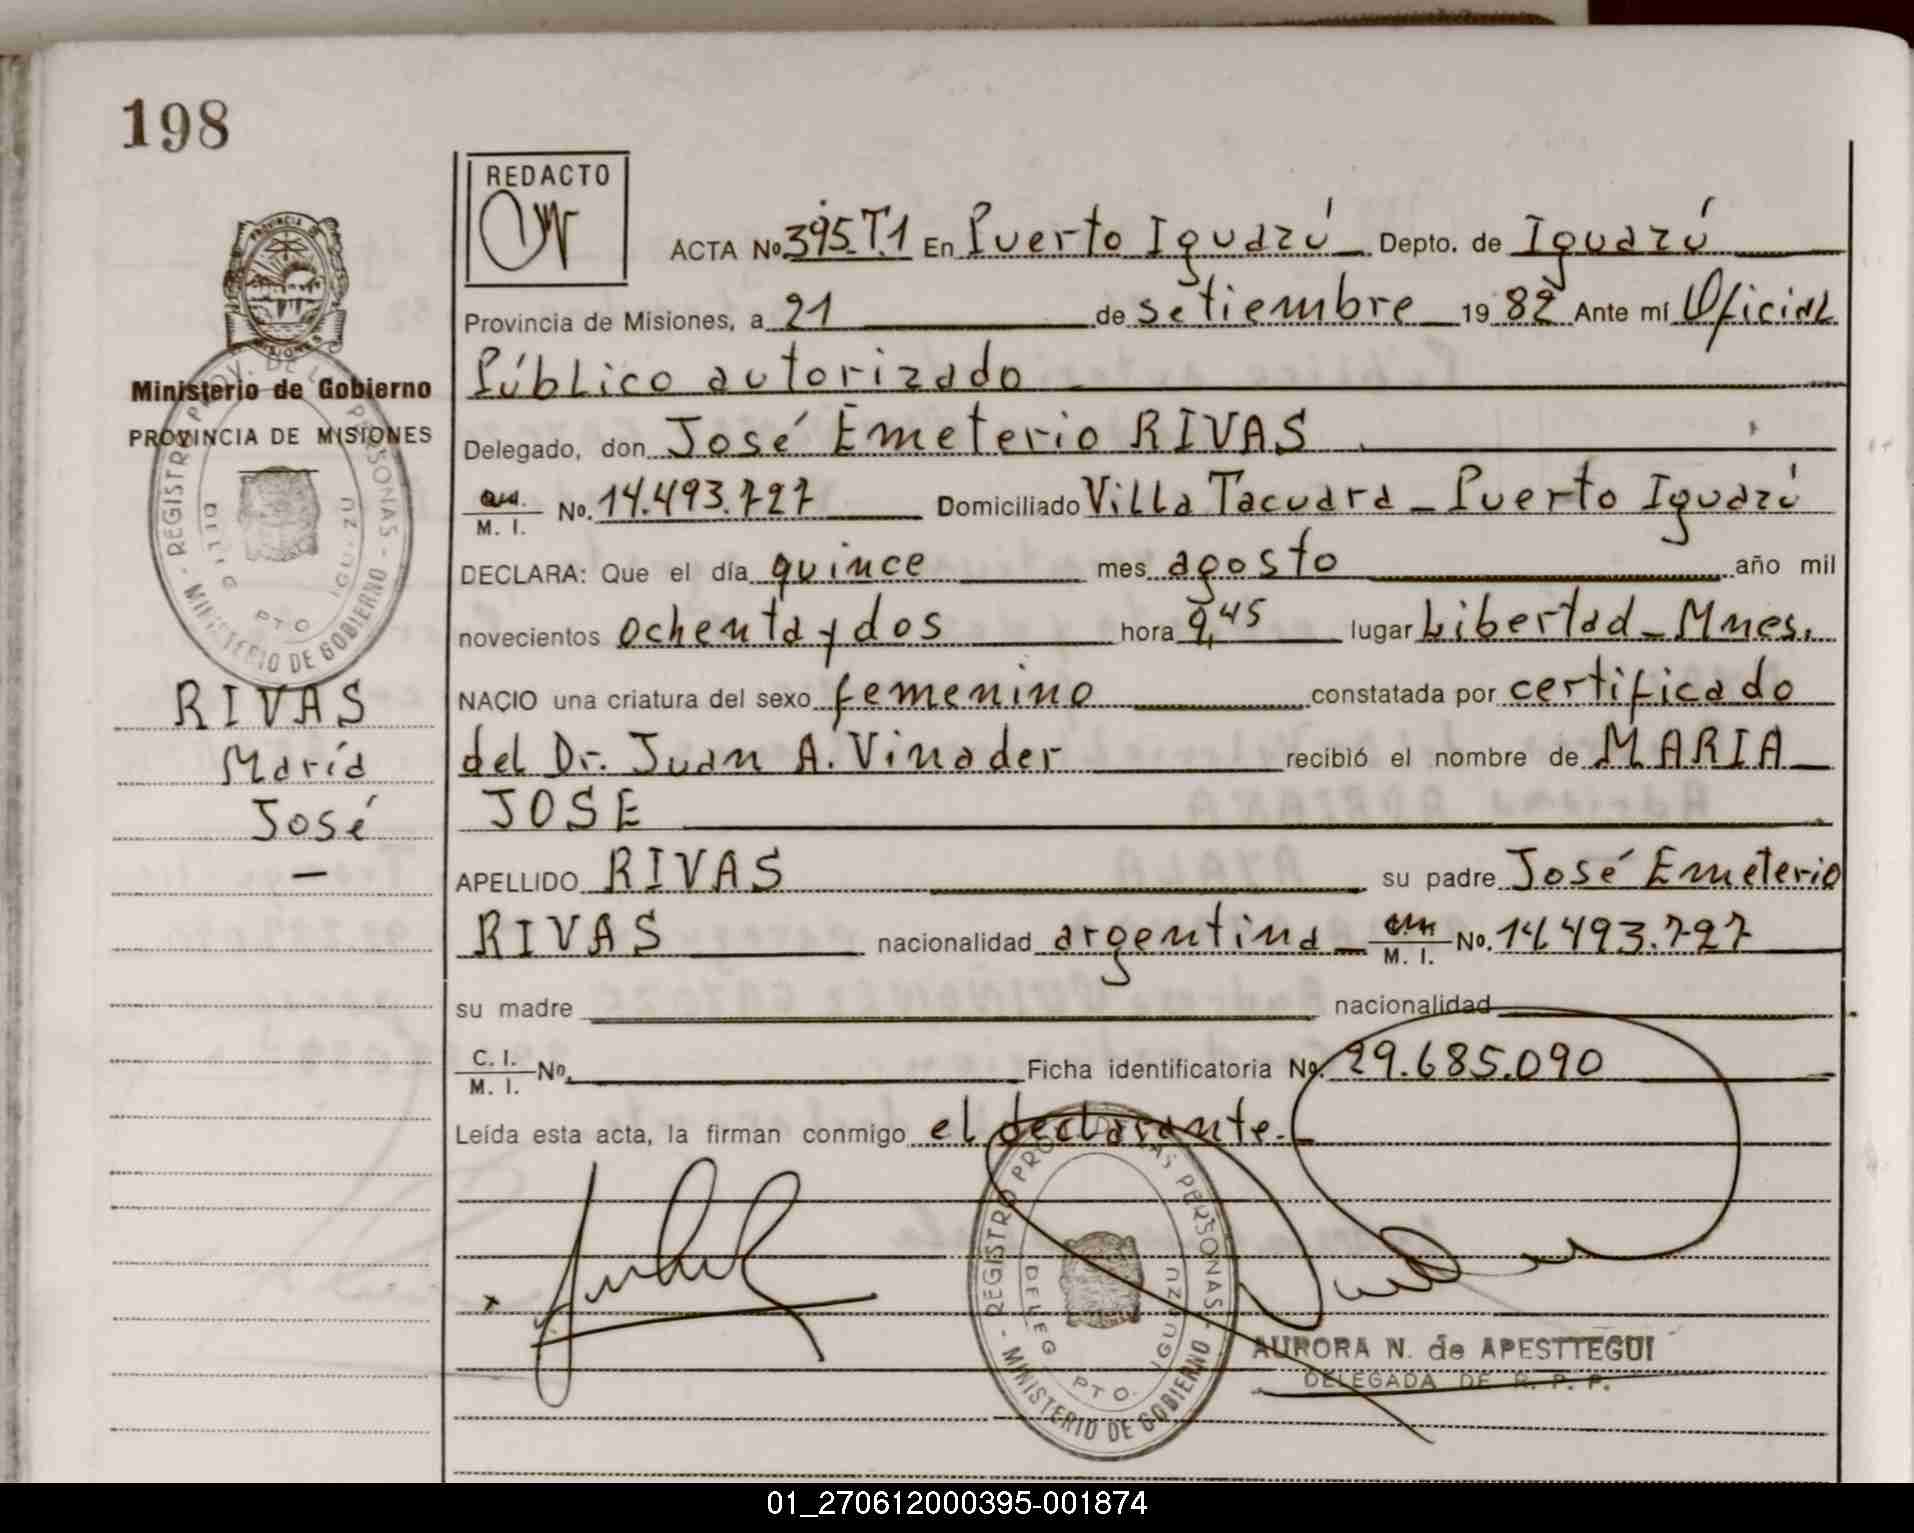 198
REDACTO
ACTA No. 395.T.1 En Puerto Iguazú Depto. de Iguazú
Provincia de Misiones, a 21 de setiembre 1982 Ante mí Oficial
Público autorizado
Ministerio de Gobierno
PROVINCIA DE MISIONES
Delegado, don José Emeterio RIVAS
M. I. No. 14.493.727 Domiciliado Villa Tacuara - Puerto Iguazú
DECLARA: Que el día quince mes agosto año mil
novecientos ochenta y dos hora 9,45 lugar Libertad - Mnes.
NACIO una criatura del sexo femenino constatada por certificado
del Dr. Juan A. Vinader recibió el nombre de MARIA
JOSE
APELLIDO RIVAS su padre José Emeterio
RIVAS nacionalidad argentina M. I. No. 14.493.727
su madre nacionalidad
C. I. M. I. No. Ficha identificatoria No. 29.685.090
Leída esta acta, la firman conmigo el declarante.-
RIVAS
María
José
-
REGISTRO PROV. DE LAS PERSONAS - MINISTERIO DE GOBIERNO
DELEG. PTO. IGUAZU
AURORA N. de APESTTEGUI
DELEGADA DE R. P. P.
01_270612000395-001874